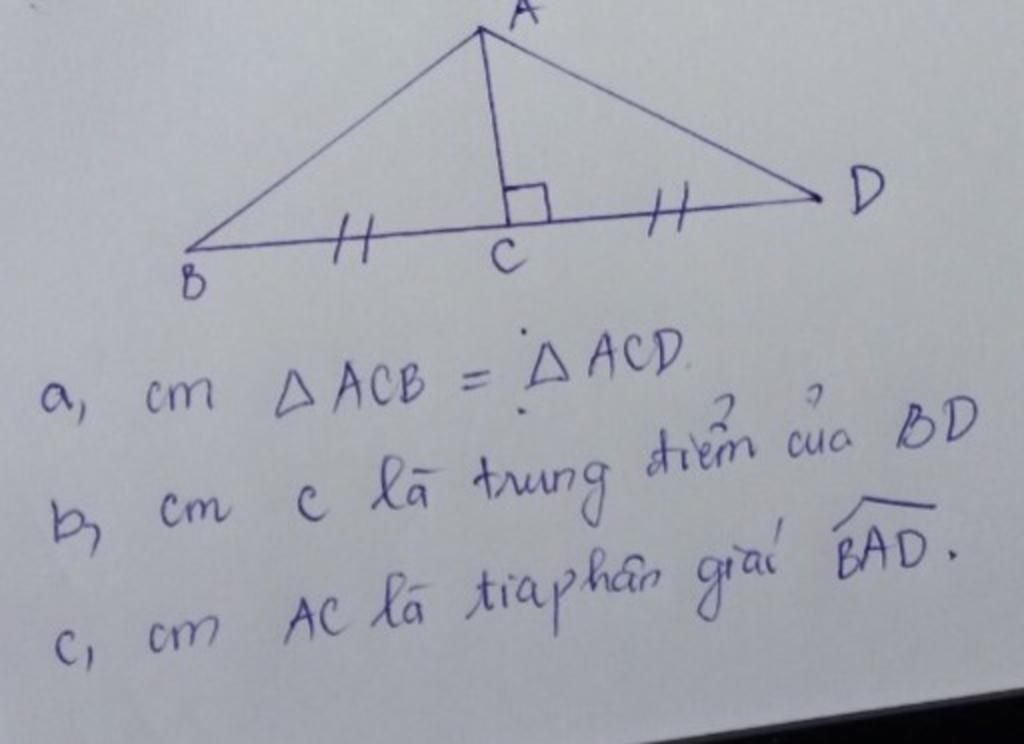 A
D
B
C
a, cm Δ ACB = Δ ACD.
b, cm C là trung điểm của BD
c, cm AC là tia phân giác BAD.